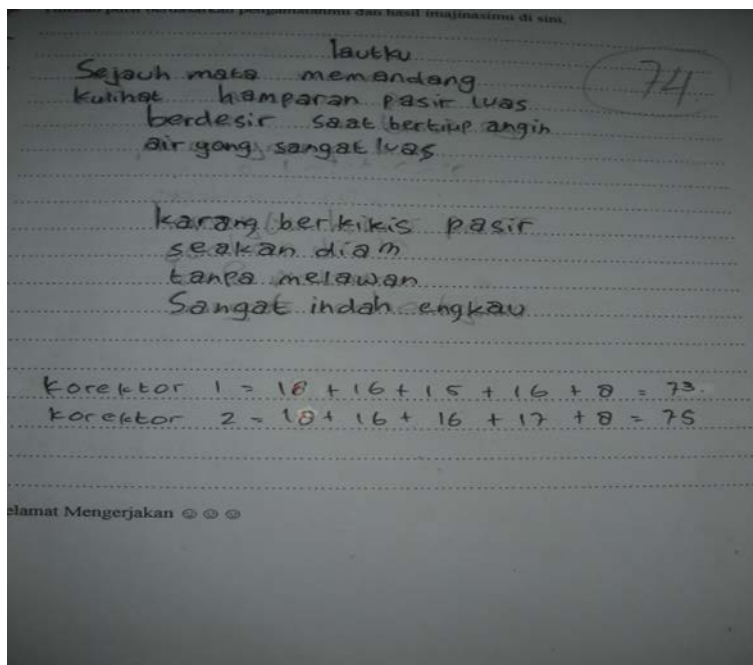 puisi berdasarkan pengamatanmu dan hasil imajinasimu di sini.
lautku
74
Sejauh mata memandang
kulihat hamparan pasir luas
berdesir saat bertiup angin
air yang sangat luas
karang berkikis pasir
seakan diam
tanpa melawan
Sangat indah engkau
Korektor 1 = 18 + 16 + 15 + 16 + 8 = 73.
Korektor 2 = 18 + 16 + 16 + 17 + 8 = 75
elamat Mengerjakan ☺ ☺ ☺